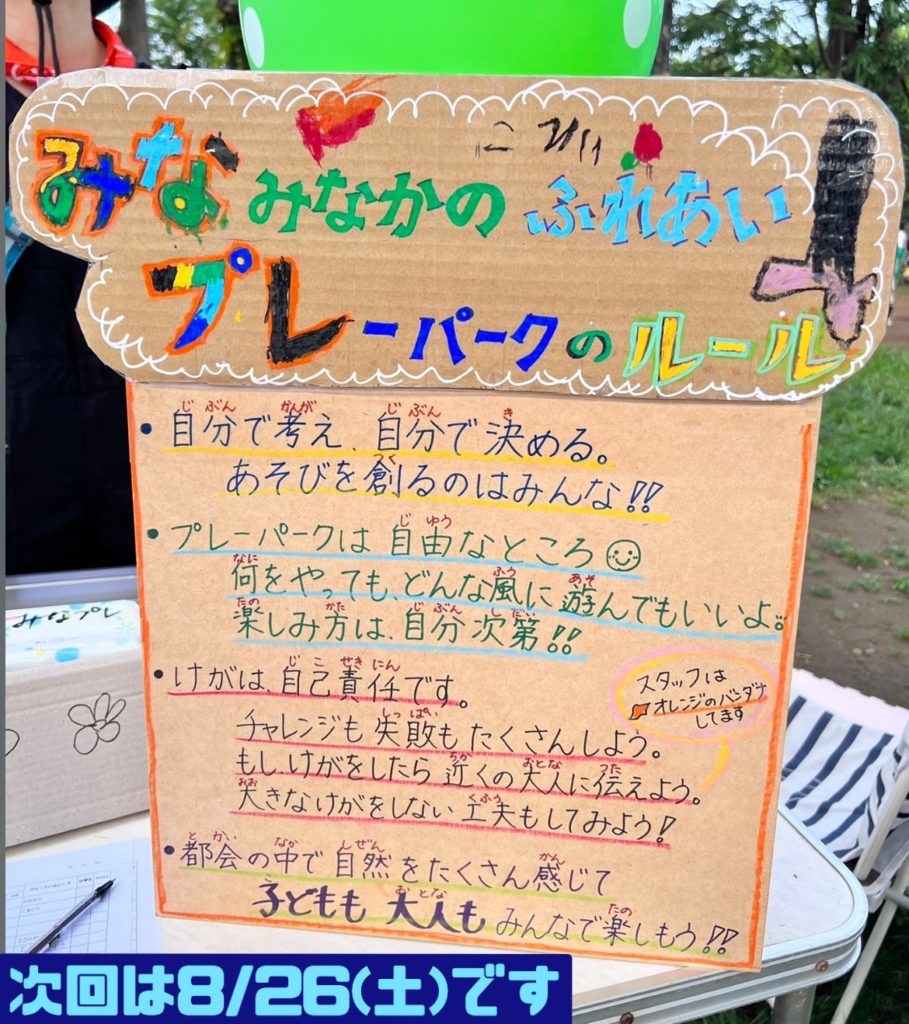 みな みなかの ふれあい
プレーパークのルール
・自分で考え、自分で決める。
あそびを創るのはみんな!!
・プレーパークは 自由なところ
何をやっても、どんな風に 遊んでもいいよ。
楽しみ方は、自分次第!!
・けがは、自己責任です。
チャレンジも 失敗も たくさんしよう。
もし、けがをしたら 近くの大人に伝えよう。
大きなけがをしない 工夫もしてみよう!
スタッフは
オレンジのバンダナ
してます
・都会の中で 自然をたくさん感じて
子どもも 大人も みんなで楽しもう!!
次回は8/26(土)です